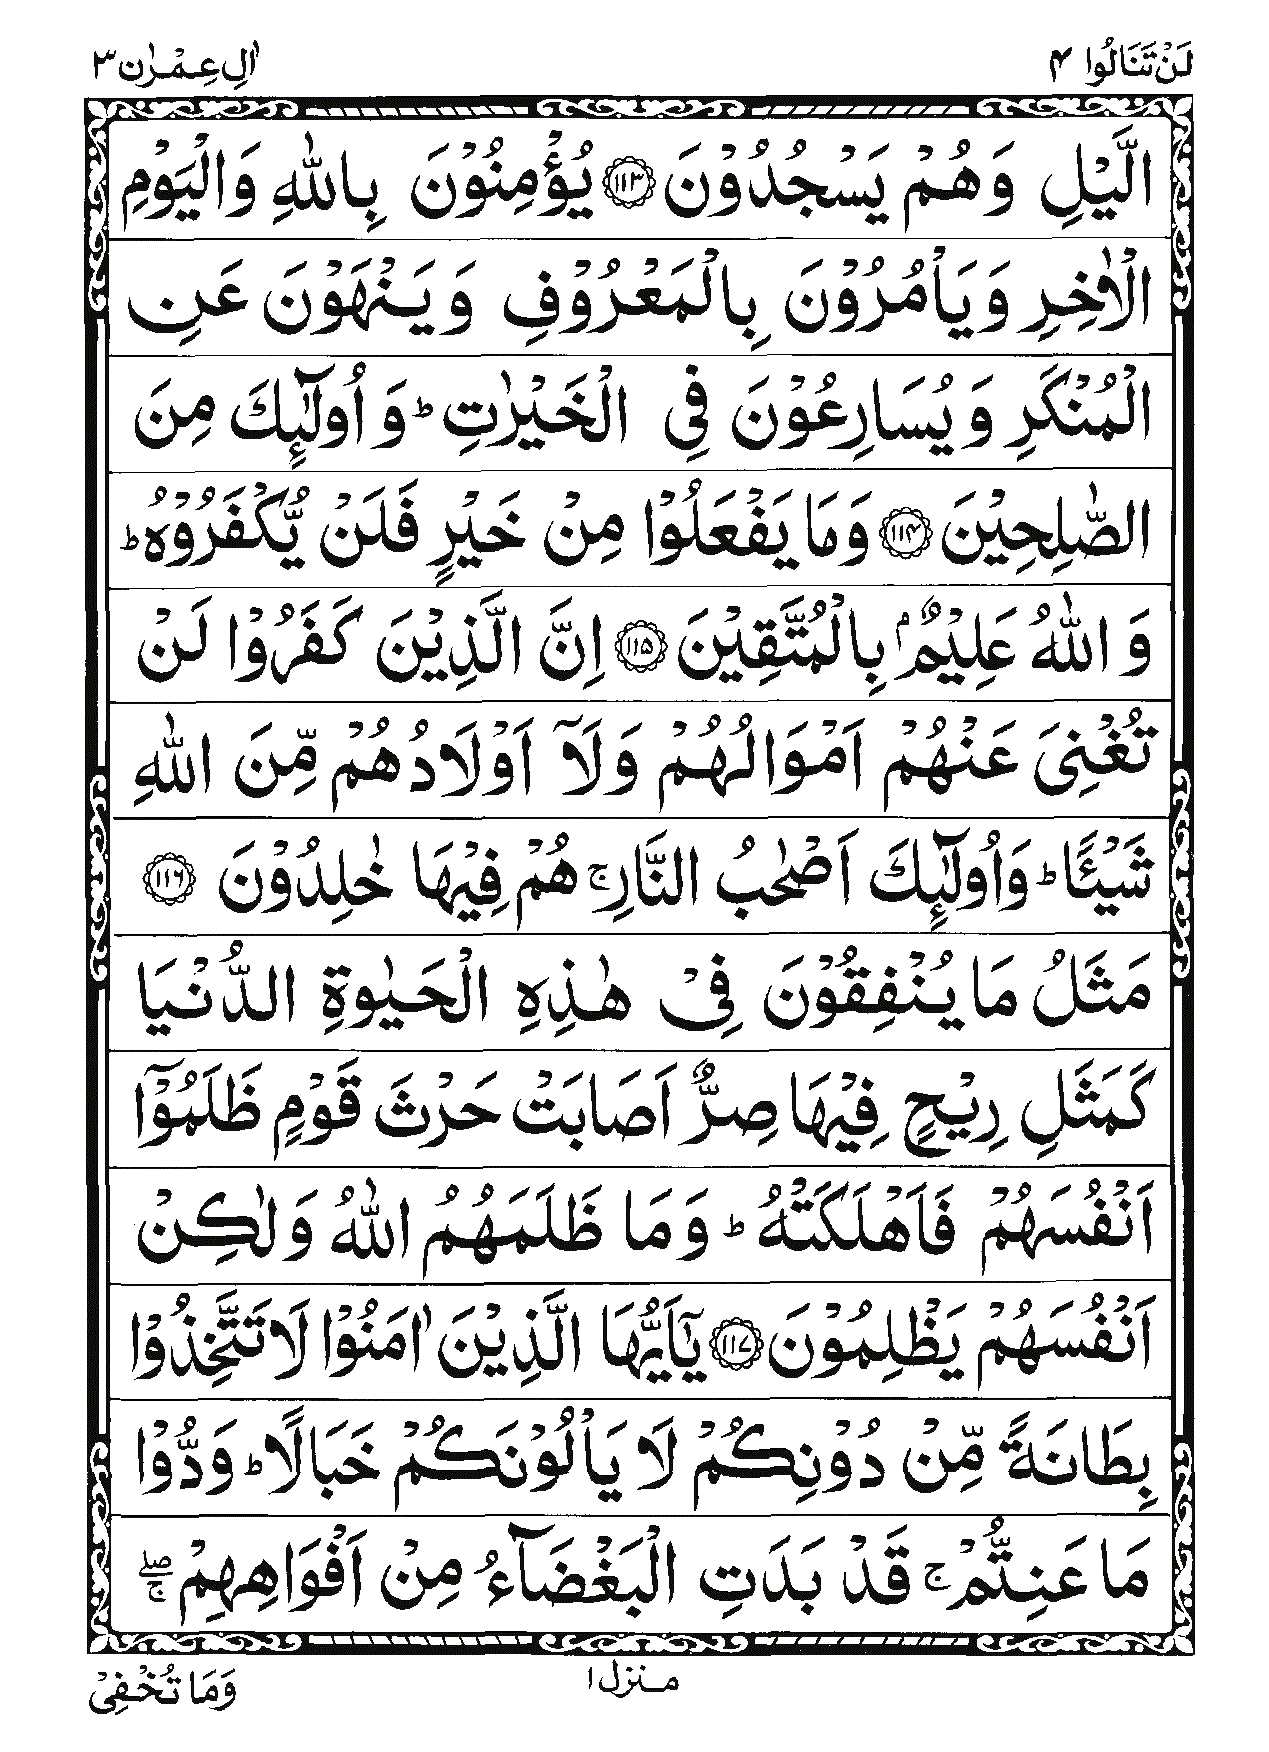 لَنْ تَنَالُوا ۴
اٰلِ عِمْرٰن ۳
الَّيْلِ وَهُمْ يَسْجُدُوْنَ ۝۱۱۳ يُؤْمِنُوْنَ بِاللّٰهِ وَالْيَوْمِ
الْاٰخِرِ وَيَاْمُرُوْنَ بِالْمَعْرُوْفِ وَيَنْهَوْنَ عَنِ
الْمُنْكَرِ وَيُسَارِعُوْنَ فِى الْخَيْرٰتِ ؕ وَاُولٰٓئِكَ مِنَ
الصّٰلِحِيْنَ ۝۱۱۴ وَمَا يَفْعَلُوْا مِنْ خَيْرٍ فَلَنْ يُّكْفَرُوْهُ ؕ
وَاللّٰهُ عَلِيْمٌۢ بِالْمُتَّقِيْنَ ۝۱۱۵ اِنَّ الَّذِيْنَ كَفَرُوْا لَنْ
تُغْنِىَ عَنْهُمْ اَمْوَالُهُمْ وَلَاۤ اَوْلَادُهُمْ مِّنَ اللّٰهِ
شَيْـًٔا ؕ وَاُولٰٓئِكَ اَصْحٰبُ النَّارِ ۚ هُمْ فِيْهَا خٰلِدُوْنَ ۝۱۱۶
مَثَلُ مَا يُنْفِقُوْنَ فِىْ هٰذِهِ الْحَيٰوةِ الدُّنْيَا
كَمَثَلِ رِيْحٍ فِيْهَا صِرٌّ اَصَابَتْ حَرْثَ قَوْمٍ ظَلَمُوْۤا
اَنْفُسَهُمْ فَاَهْلَكَتْهُ ؕ وَمَا ظَلَمَهُمُ اللّٰهُ وَلٰكِنْ
اَنْفُسَهُمْ يَظْلِمُوْنَ ۝۱۱۷ يٰۤاَيُّهَا الَّذِيْنَ اٰمَنُوْا لَا تَتَّخِذُوْا
بِطَانَةً مِّنْ دُوْنِكُمْ لَا يَاْلُوْنَكُمْ خَبَالًا ؕ وَدُّوْا
مَا عَنِتُّمْ ۚ قَدْ بَدَتِ الْبَغْضَآءُ مِنْ اَفْوَاهِهِمْ ۖۚ
منزل ۱
وَمَا تُخْفِىْ